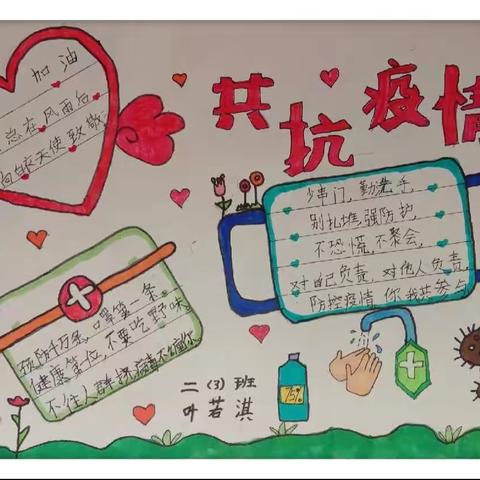 共抗疫情
加油
总在风雨后
向白衣天使致敬
少串门,勤洗手,
别扎堆,强防护,
不恐慌,不聚会,
对自己负责,对他人负责,
防控疫情 你我共参与
预防千万条,口罩第一条
健康第一位,不要吃野味
不往人群挤,病毒不
75%
二(3)班
叶若淇